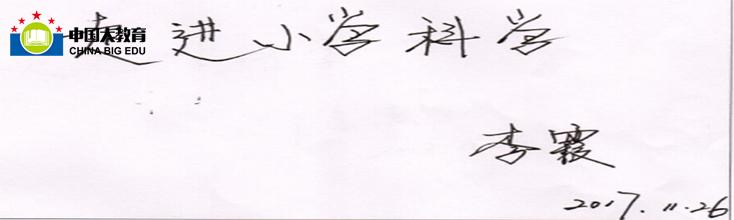 中国大教育
CHINA BIG EDU
走进小学科学
李霞
2017.11.26